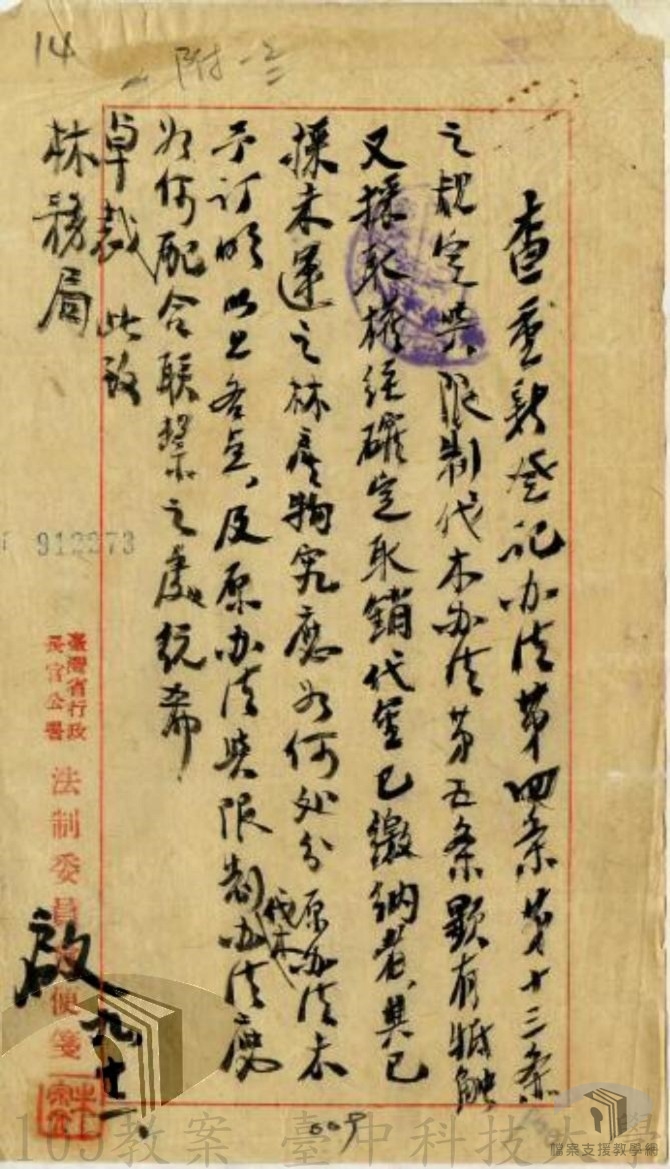 14
附二
查重新登記办法第四条第十三条
之規定與限制伐木办法第五条顯有牴触
又採取權経確定取銷代金已繳納者其已
採未運之林產物究應为何处分原办法未
予订明以上各点及原办法與限制伐木办法应
为何配合联繫之處統希
卓裁 此致
林務局
912273
臺灣省行政
長官公署
法制委員 便箋
啟 九、十一、
009
105教案 臺中科技大學
檔案支援教學網